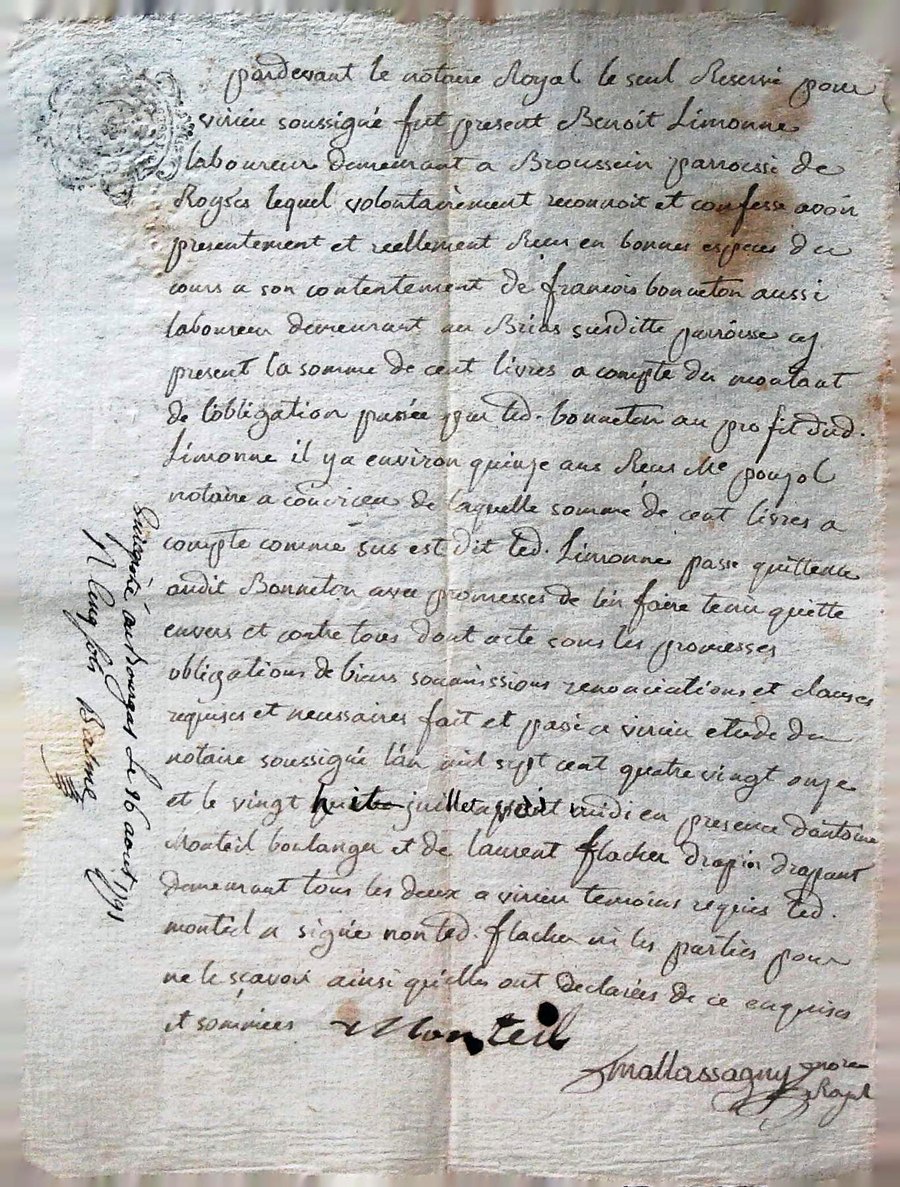 pardevant le notaire Royal le seul Reservé pour
virieu soussigné fut present Benoit Limonne
laboureur demeurant a Broussein parroisse de
Roysés lequel volontairement reconnoit et confesse avoir
presentement et reellement Receu en bonnes especes du
cours a son contentement de françois bonneton aussi
laboureur demeurant au Brias susditte parroisse cy
present la somme de cent livres a compte du montant
de l'obligation passée par led. bonneton au profit dud.
Limonne il y a environ quinze ans Receus Me poujol
notaire a de laquelle somme de cent livres a
compte comme sus est dit led. Limonne passe quittence
audit Bonneton avec promesses de l'en faire tenir quitte
envers et contre tous dont acte sous les promesses
obligations de biens soumissions renonciations et clauses
requises et necessaires fait et passé a virieu etude du
notaire soussigné l'an mil sept cent quatre vingt onze
et le vingt huit juillet avant midi en presence d'antoine
Monteil boulanger et de laurent flacher drapier drapant
demeurant tous les deux a virieu temoins requis led.
monteil a signé non led. flacher ni les parties pour
ne le sçavoir ainsi qu'elles ont declarées de ce enquises
et sommées Monteil
Mallassagny nore
Royal
le 16 aout 1791
Balme